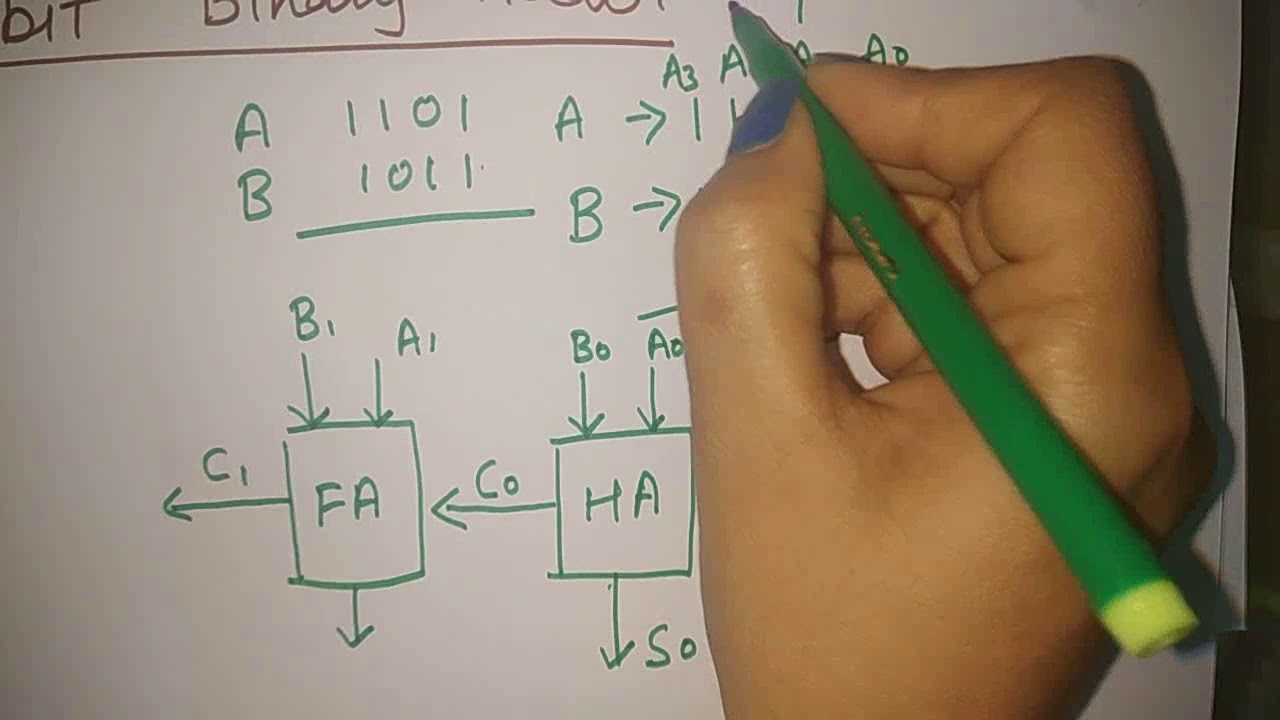 BIT Binary
A3 A A A0
A 1101 A → 1 1
B 1011 B →
B1 A1 B0 A0
C1 FA C0 HA
S0